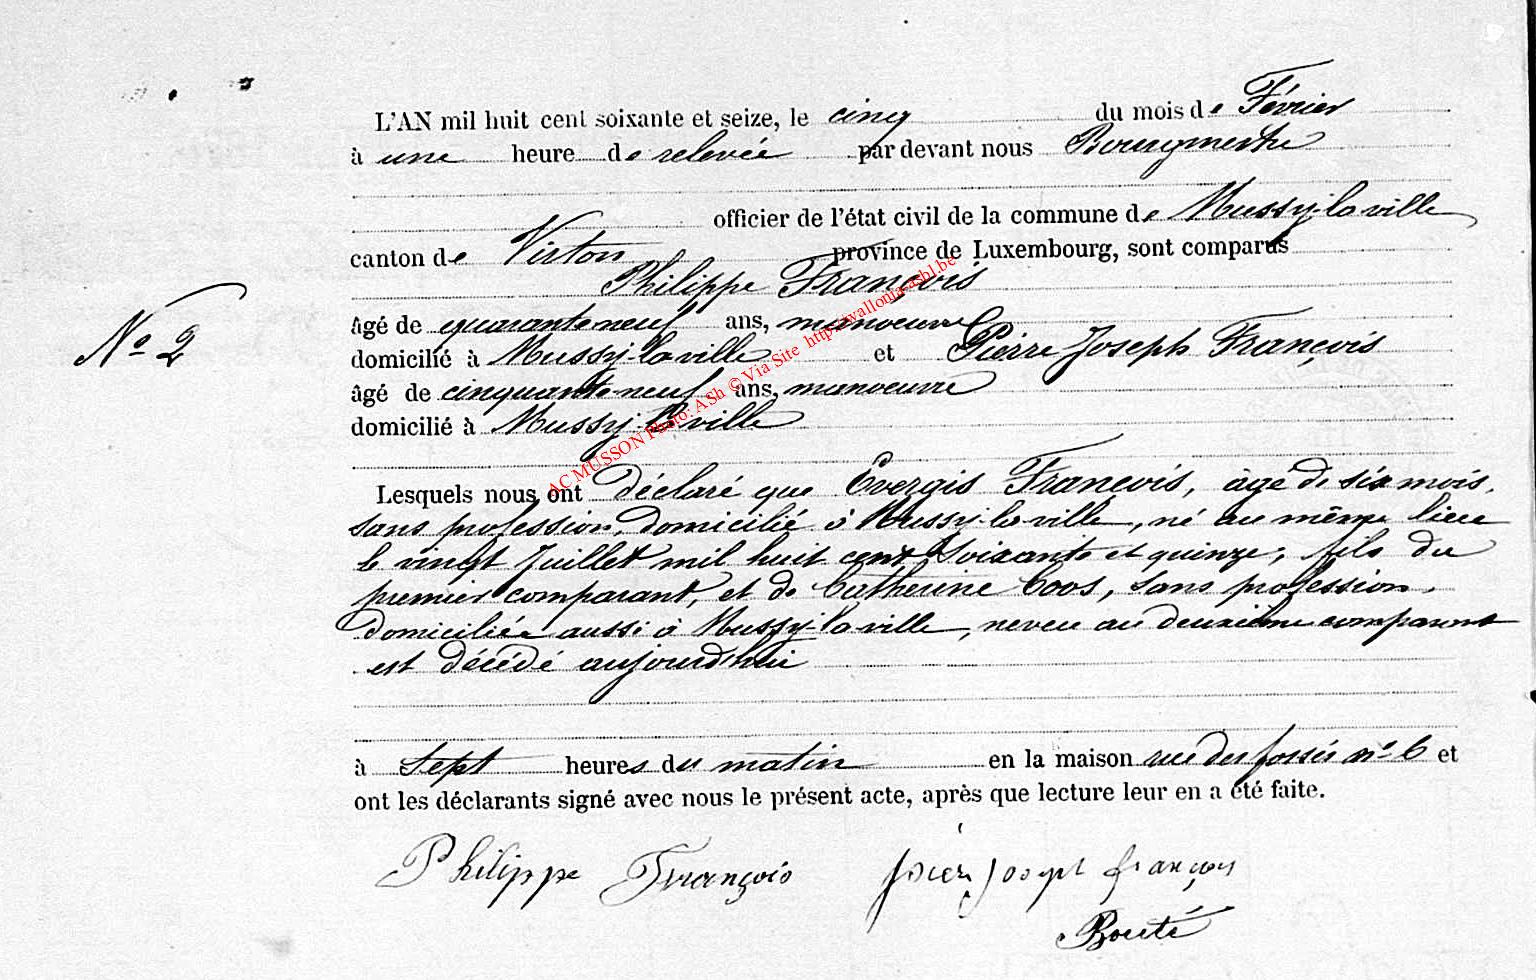 L'AN mil huit cent soixante et seize, le cinq du mois de Février
à une heure de relevée par devant nous Bourgmestre
officier de l'état civil de la commune de Mussy-la-ville
canton de Virton province de Luxembourg, sont comparus
Philippe François
âgé de quarante neuf ans, manoeuvre
N° 2
domicilié à Mussy-la-ville et Pierre Joseph François
âgé de cinquante neuf ans, manoeuvre
domicilié à Mussy-la-ville
AC MUSSON Photo: ASh © Via Site http://wallonia-asbl.be
Lesquels nous ont déclaré que Evergis François, âgé de six mois,
sans profession, domicilié à Mussy-la-ville, né au même lieu
le vingt Juillet mil huit cent soixante et quinze, fils du
premier comparant, et de Catherine Coos, sans profession,
domiciliée aussi à Mussy-la-ville, neveu au deuxième comparant
est décédé aujourd'hui
à sept heures du matin en la maison rue des fossés n° 6 et
ont les déclarants signé avec nous le présent acte, après que lecture leur en a été faite.
Philippe François Joseph françois
Bouté